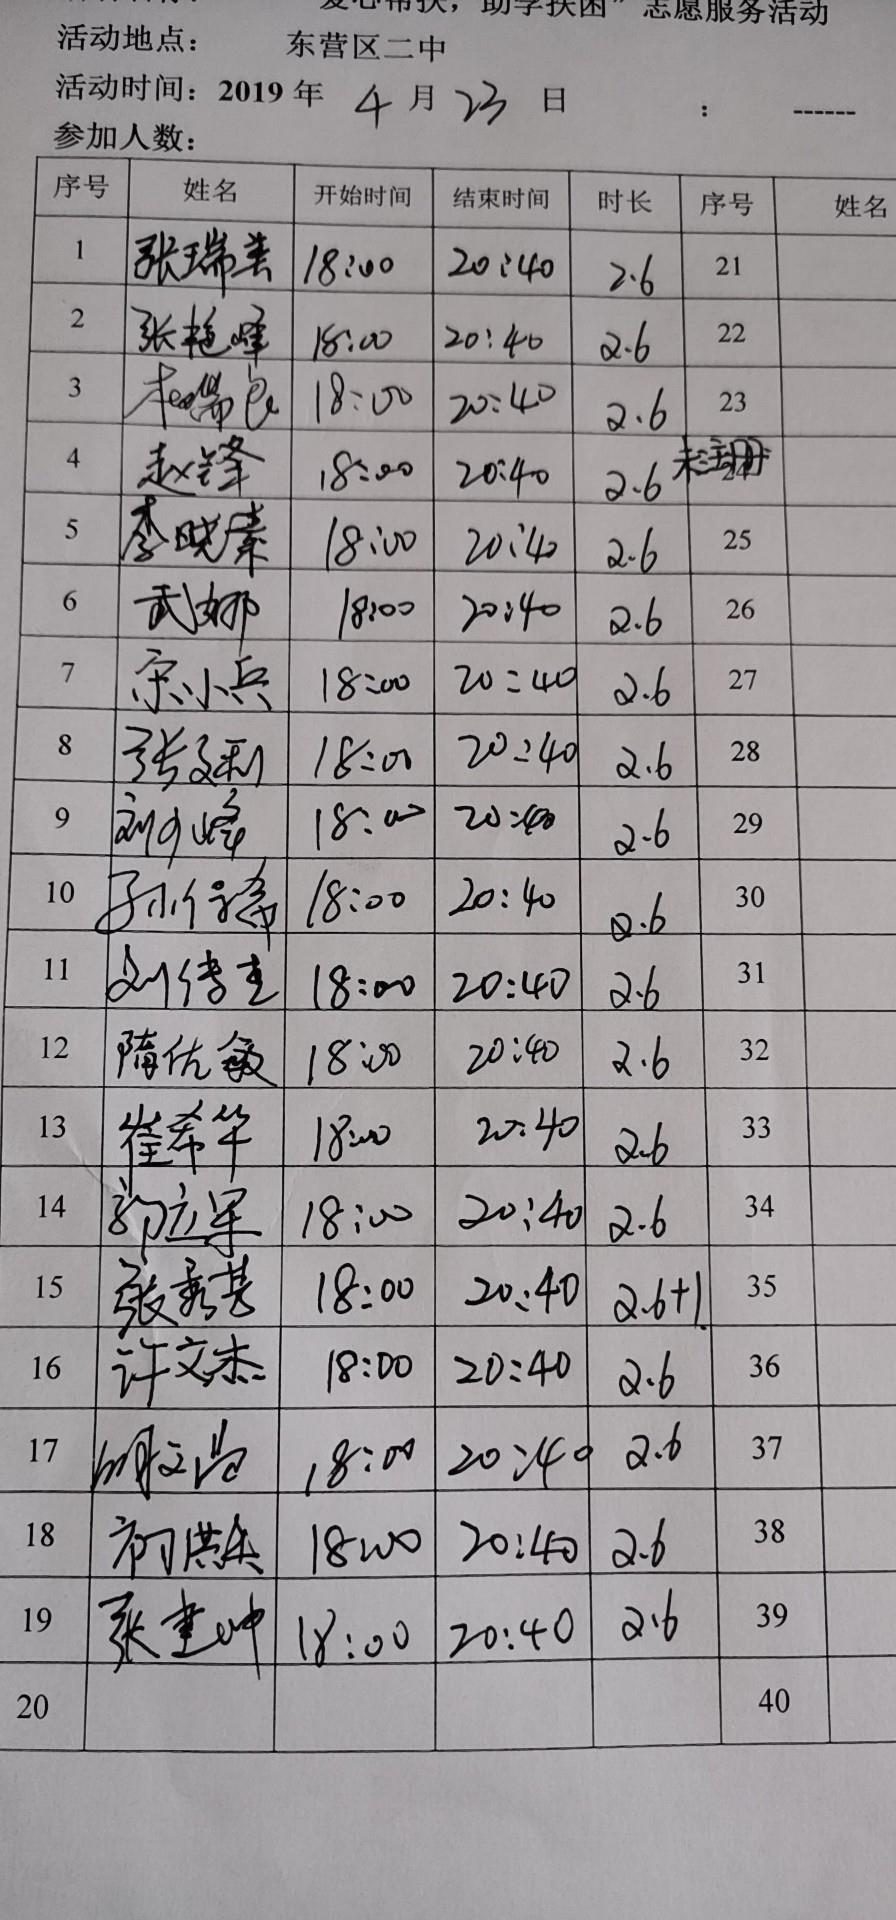 爱心帮扶，助学扶困”志愿服务活动
活动地点： 东营区二中
活动时间：2019 年 4 月 23 日 : ------
参加人数：
序号 姓名 开始时间 结束时间 时长 序号 姓名
1 张瑞美 18:00 20:40 2.6 21
2 张艳峰 18:00 20:40 2.6 22
3 18:00 20:40 2.6 23
4 赵锋 18:00 20:40 2.6 未注册 24
5 李晓素 18:00 20:40 2.6 25
6 武娜 18:00 20:40 2.6 26
7 宋小兵 18:00 20:40 2.6 27
8 张文利 18:00 20:40 2.6 28
9 刘少峰 18:00 20:40 2.6 29
10 18:00 20:40 2.6 30
11 刘传圭 18:00 20:40 2.6 31
12 隋优敏 18:00 20:40 2.6 32
13 崔希华 18:00 20:40 2.6 33
14 郭立军 18:00 20:40 2.6 34
15 张秀芸 18:00 20:40 2.6+1 35
16 许文杰 18:00 20:40 2.6 36
17 18:00 20:40 2.6 37
18 18:00 20:40 2.6 38
19 张建坤 18:00 20:40 2.6 39
20 40